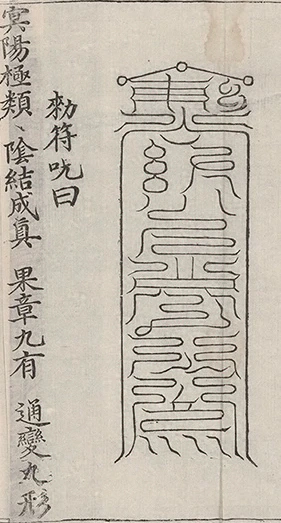 勑符呪曰
冥陽極類、陰結成真 果章九有 通變九形